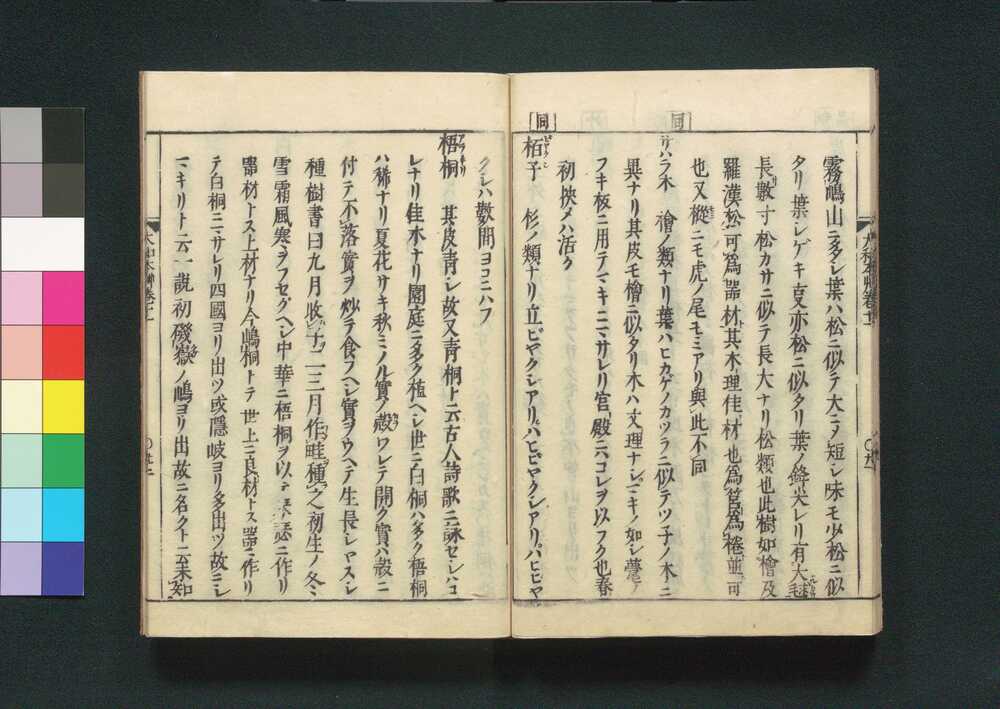 霧嶋山ニ多シ葉ハ松ニ似テ大ニ乄短シ味モ少松ニ似
タリ葉シゲキ叓亦松ニ似タリ葉ノ鋒尖レリ有大毛
長數寸松カサニ似テ長大ナリ松類也此樹如檜及
羅漢松可為器材其木理佳材也為筥為棬並可
也又樅ニモ虎ノ尾モミアリ與此不同
同
サハラ木 檜ノ類ナリ葉ハヒカゲノカツラニ似テツ子ノ木ニ
異ナリ其皮モ檜ニ似タリ木ハ文理ナシマキノ如シ甍ノ
フキ板ニ用テマキニマサレリ官殿ニハコレヲ以フク也春
初挾メハ活ク
同
栢子 杉ノ類ナリ立ビヤクシアリハヒビヤクシアリハヒビヤ
クシハ數間ヨコニハフ
梧桐 其皮青シ故又青桐ト云古人詩歌ニ詠セシハコ
レナリ佳木ナリ園庭ニ多ク植ヘシ世ニ白桐ハ多ク梧桐
ハ稀ナリ夏花サキ秋ミノル實ノ殻ワレテ開ク實ハ殻ニ
付テ不落實ヲ炒テ食フヘシ實ヲウヘテ生長シヤスシ
種樹書曰九月收子二三月作畦種之初生ノ冬
雪霜風寒ヲフセグヘシ中華ニ梧桐ヲ以テ琴瑟ニ作リ
噐材トス上材ナリ今嶋桐トテ世上ニ良材トス噐ニ作リ
テ白桐ニマサレリ四國ヨリ出ツ或隱岐ヨリ多出ツ故ニシ
マキリト云一説初磯嶽ノ嶋ヨリ出故ニ名クト云未知
大和本草卷十一
大和本草卷十一